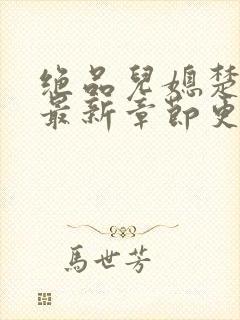 绝品儿媳楚
最新章节更
馬世芳